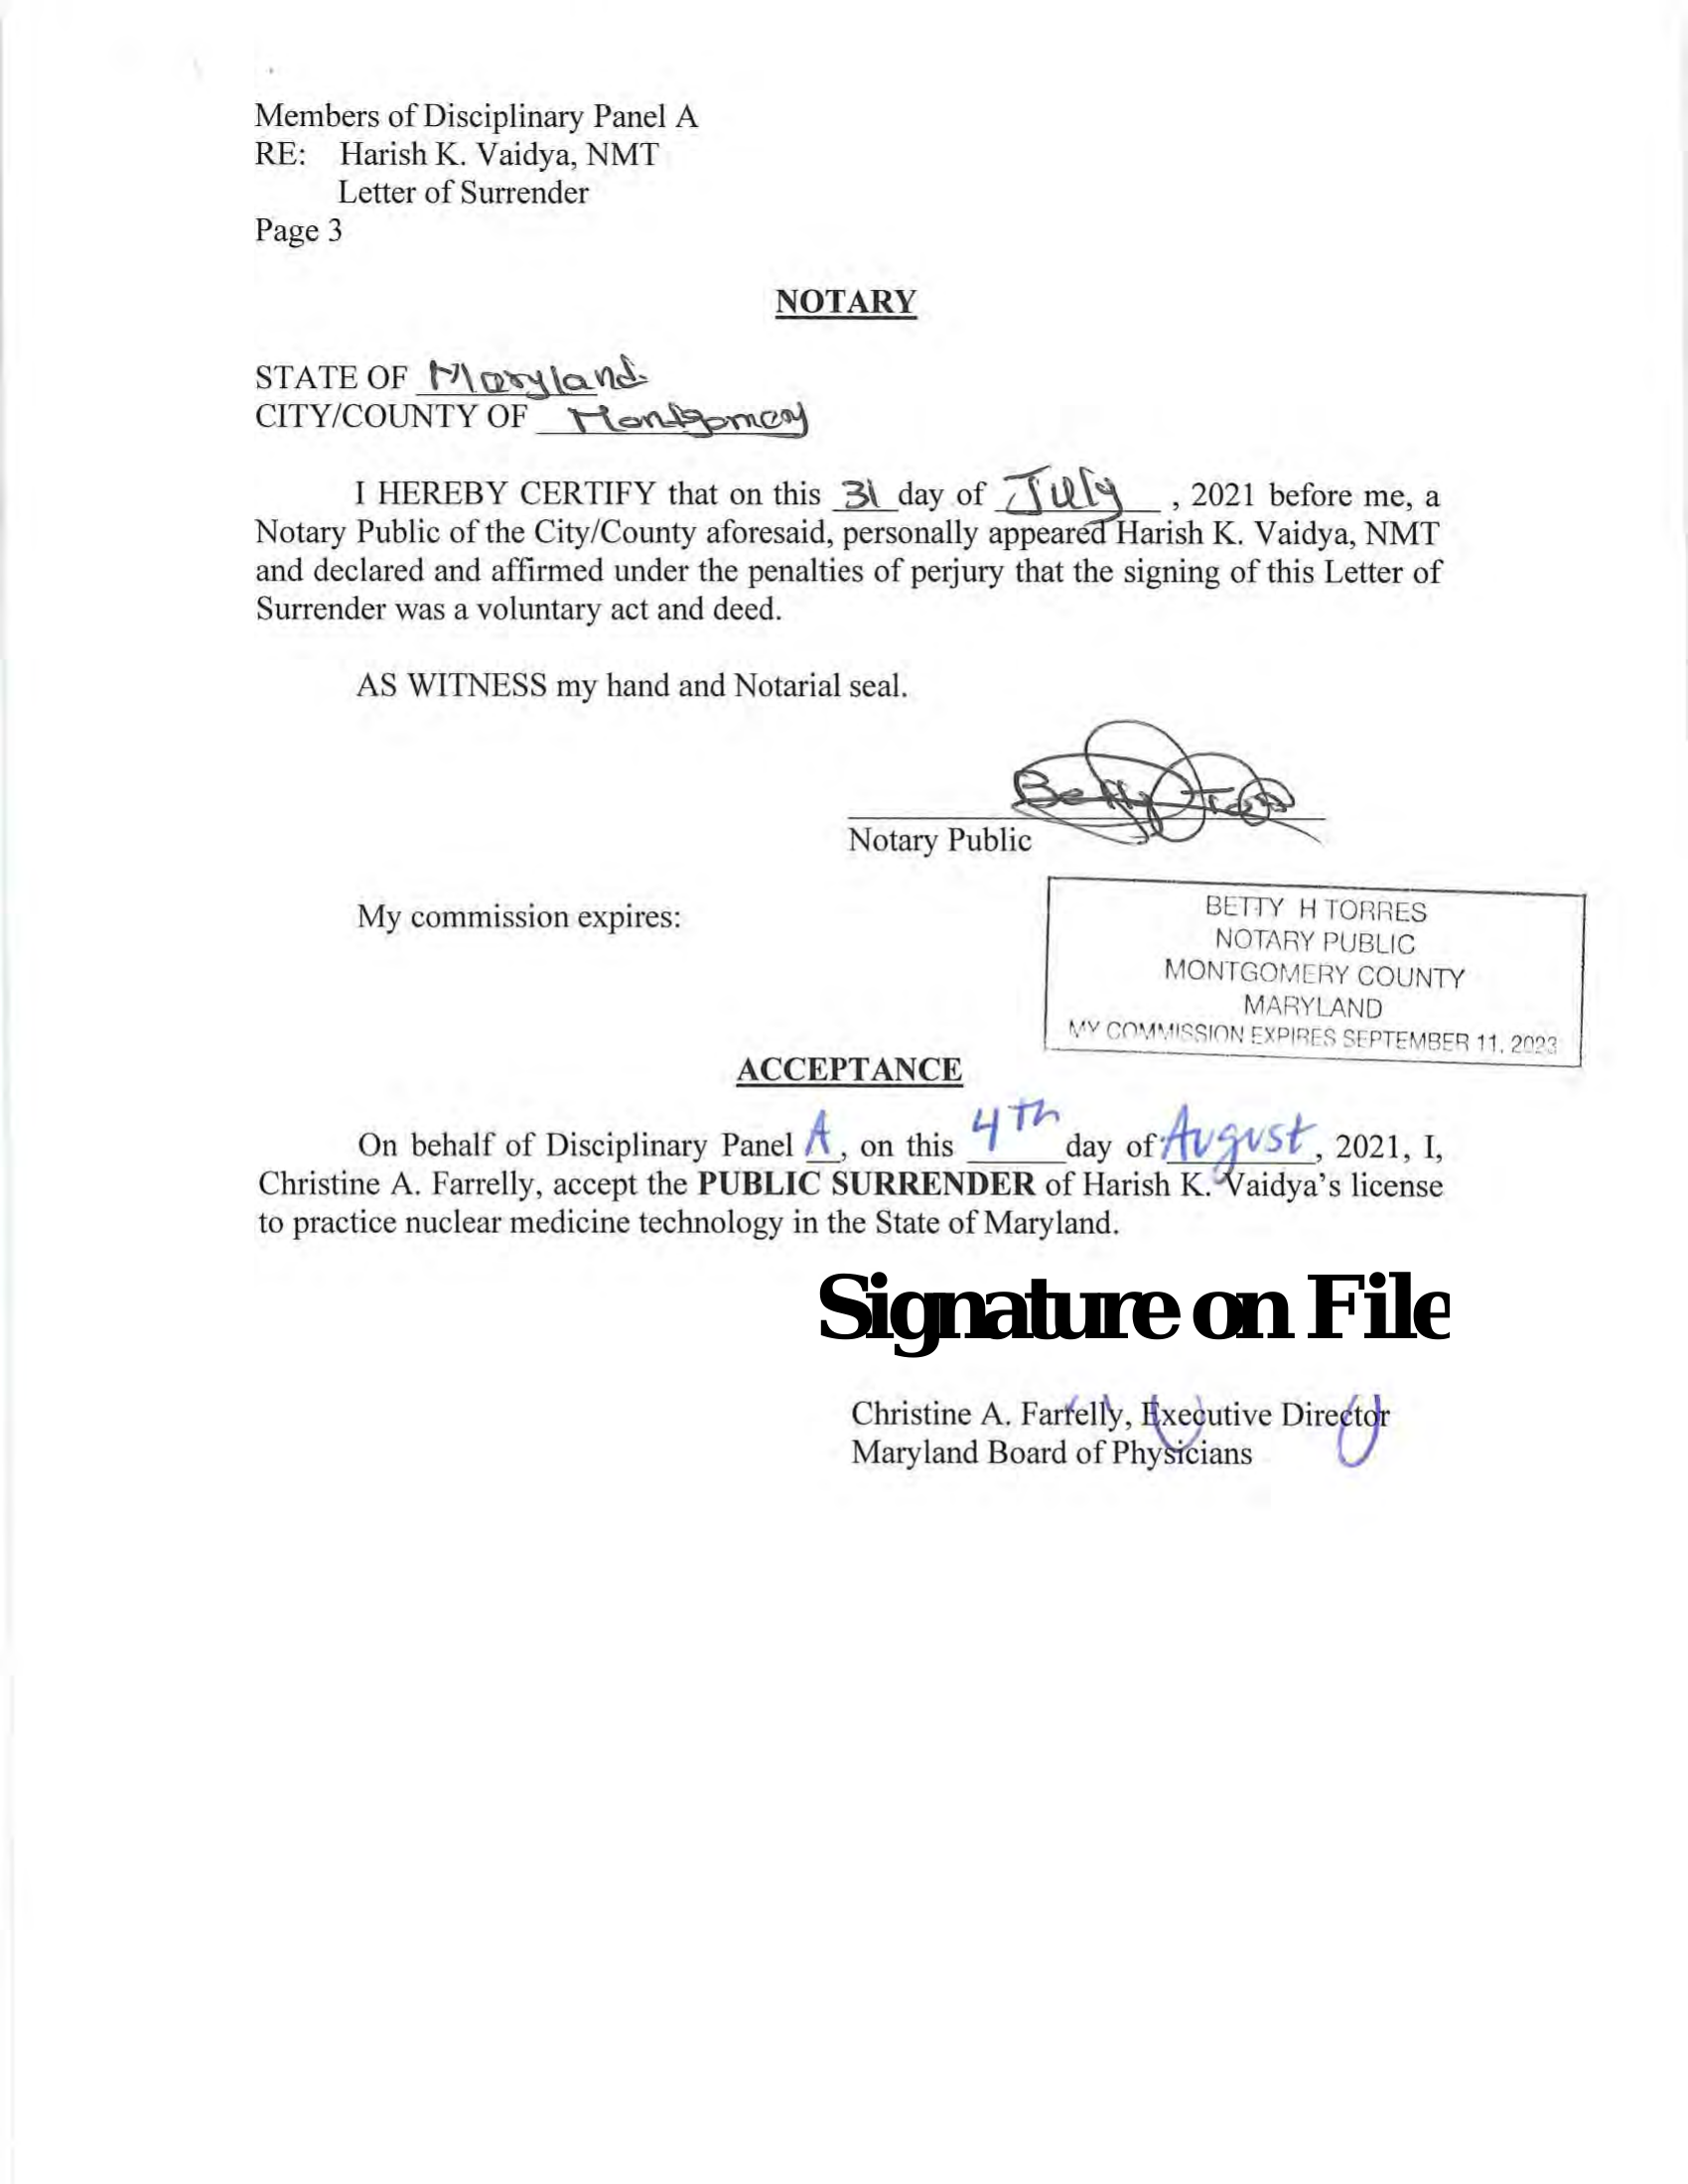 Members of Disciplinary Panel A
RE: Harish K. Vaidya, NMT
Letter of Surrender
Page 3
NOTARY
STATE OF Maryland
CITY/COUNTY OF Montgomery
I HEREBY CERTIFY that on this 31 day of July, 2021 before me, a
Notary Public of the City/County aforesaid, personally appeared Harish K. Vaidya, NMT
and declared and affirmed under the penalties of perjury that the signing of this Letter of
Surrender was a voluntary act and deed.
AS WITNESS my hand and Notarial seal.
Betty Torres
Notary Public
My commission expires:
BETTY H TORRES
NOTARY PUBLIC
MONTGOMERY COUNTY
MARYLAND
MY COMMISSION EXPIRES SEPTEMBER 11, 2023
ACCEPTANCE
On behalf of Disciplinary Panel A, on this 4Th day of August, 2021, I,
Christine A. Farrelly, accept the PUBLIC SURRENDER of Harish K. Vaidya's license
to practice nuclear medicine technology in the State of Maryland.
Signature on File
Christine A. Farrelly, Executive Director
Maryland Board of Physicians